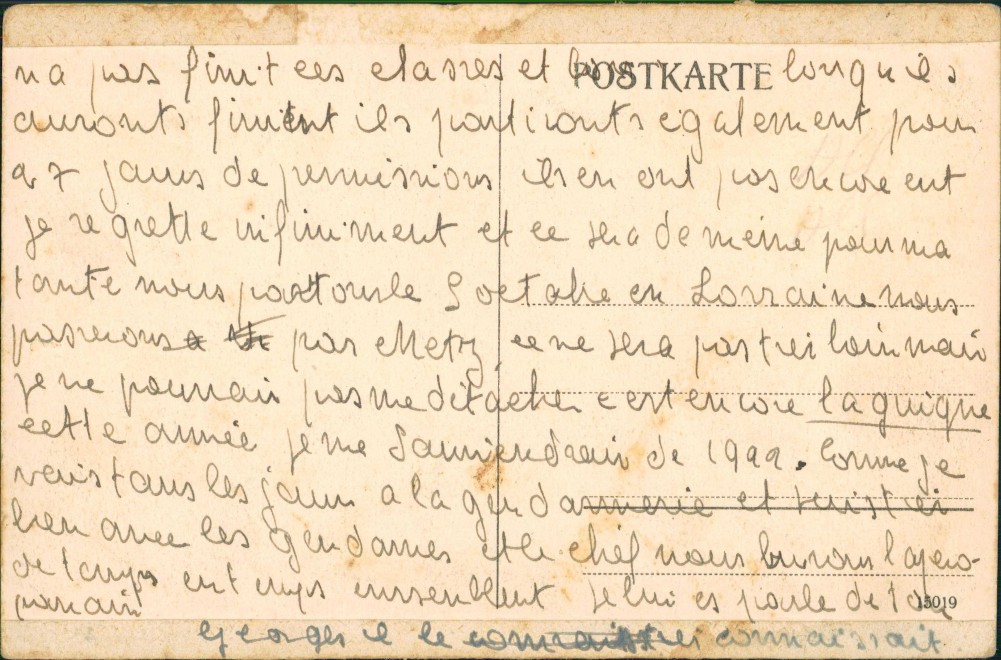 POSTKARTE
na pas finit ces classes et lorsquils
auronts finient ils partironts egalement pour
47 jours de permissions ils en ont pas encore eut
je regrette infiniment et ce sera de meme pour ma
tante nous partons le 9 octobre en Lorraine nous
passerons a par Metz ce ne sera pas trei loin mais
je ne pourrais pas me détacher c est encore la guigne
cette année je me souviendrais de 1922. Comme je
vais tous les jours a la gendarmerie et suis trei
bien avec les gendarmes et le chef nous buvons l apero
de temps ent emps ensemblent je lui es parle de ton
parain
15019
Georges il le connaissait